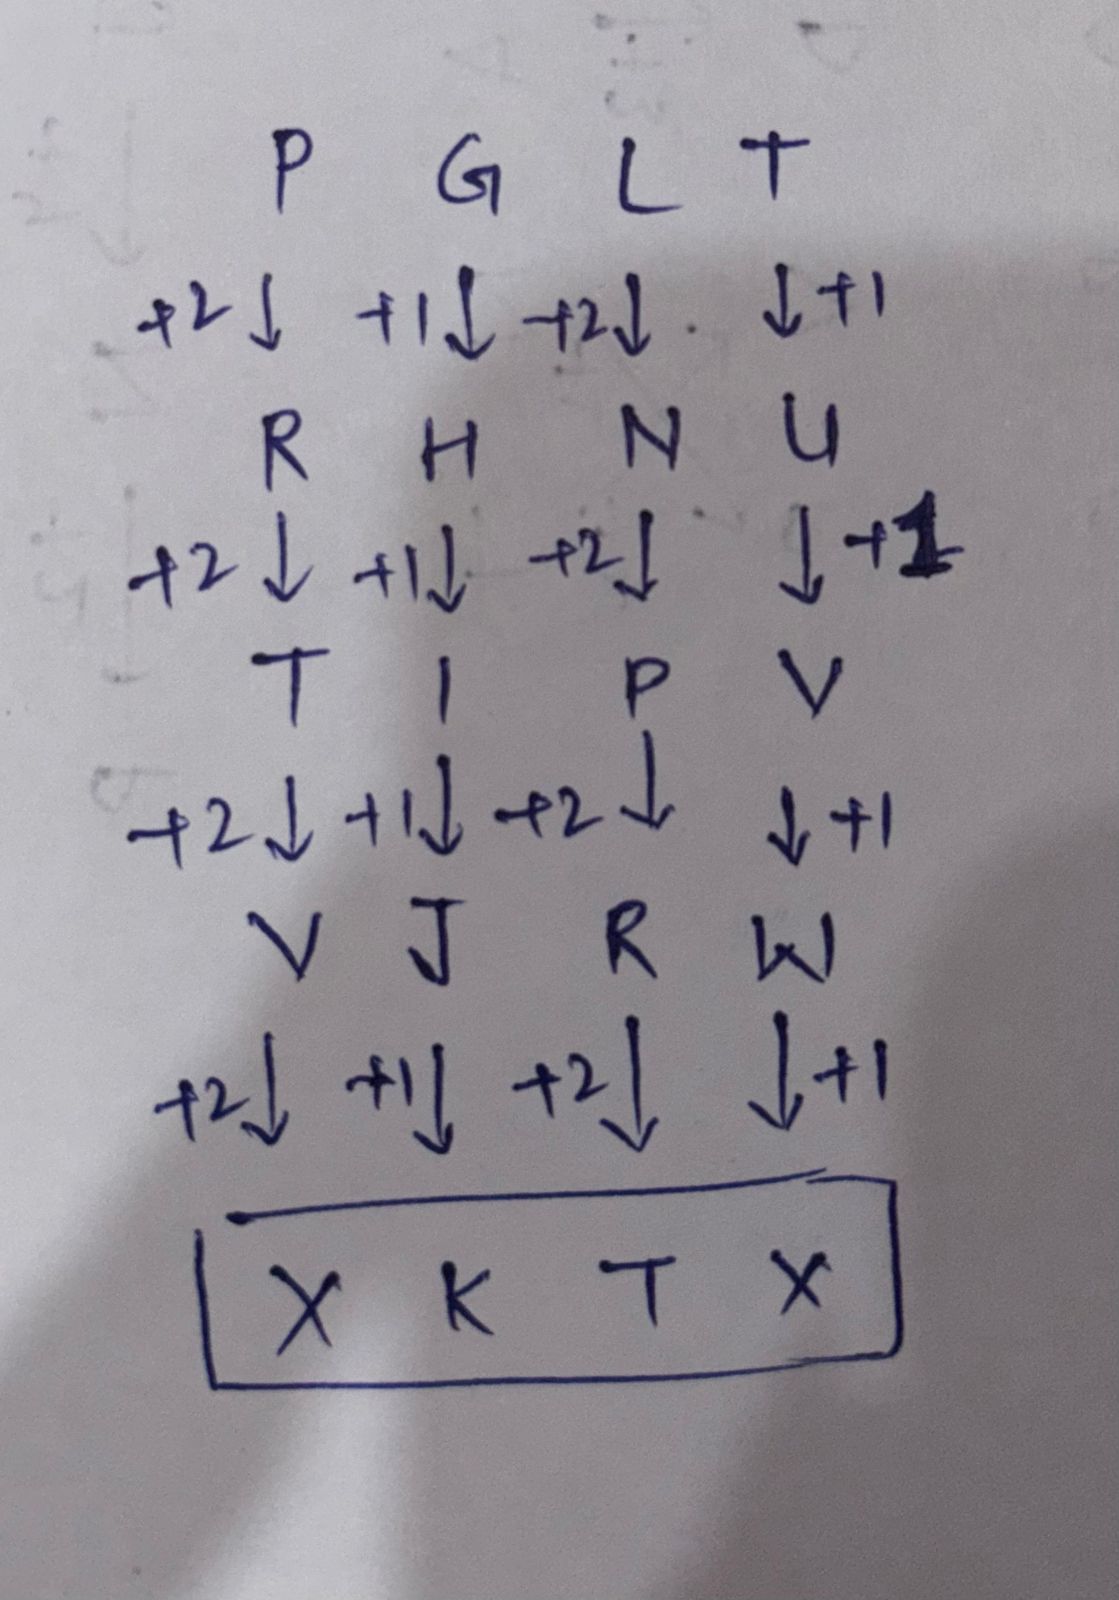 P G L T
+2↓ +1↓ +2↓ ↓+1
R H N U
+2↓ +1↓ +2↓ ↓+1
T I P V
+2↓ +1↓ +2↓ ↓+1
V J R W
+2↓ +1↓ +2↓ ↓+1
X K T X